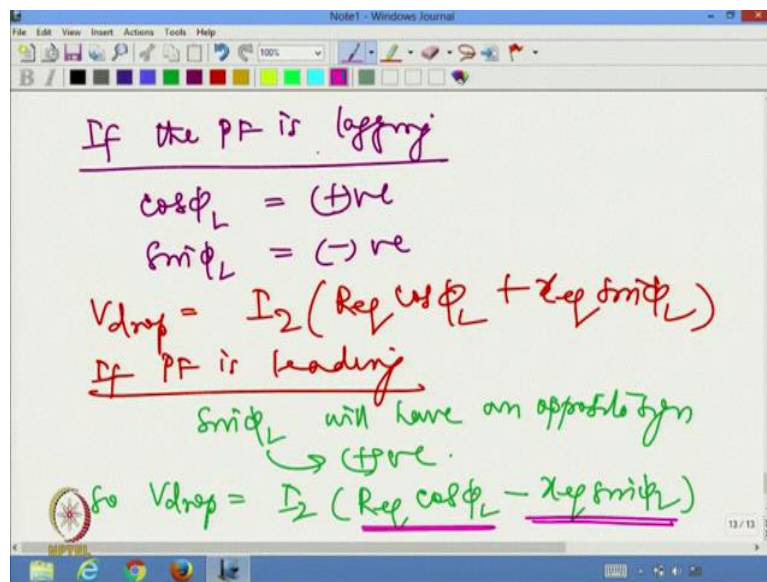 Note1 - Windows Journal
File Edit View Insert Actions Tools Help
100%
B I
If the PF is lagging
cosφL = (+)ve
sinφL = (-)ve
Vdrop = I2(Req cosφL + xeq sinφL)
If PF is leading
sinφL will have an opposite sign
→ (+)ve.
So Vdrop = I2 (Req cosφL - xeq sinφL)
NPTEL
13 / 13